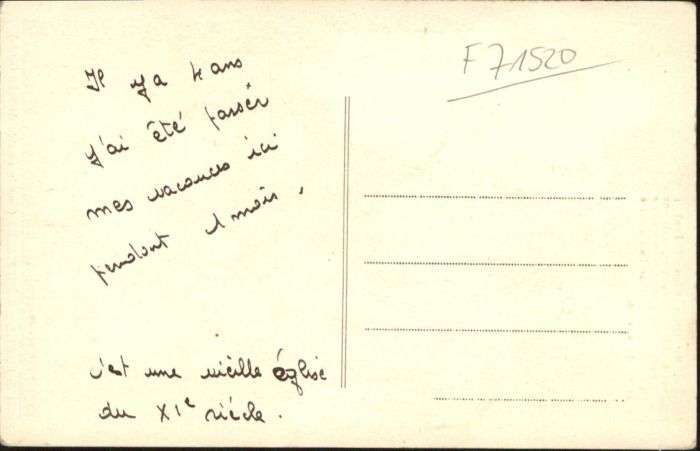 Il y a 4 ans
j'ai été passer
mes vacances ici
pendant 1 mois.
c'est une vieille église
du XIe siécle.
F 71520